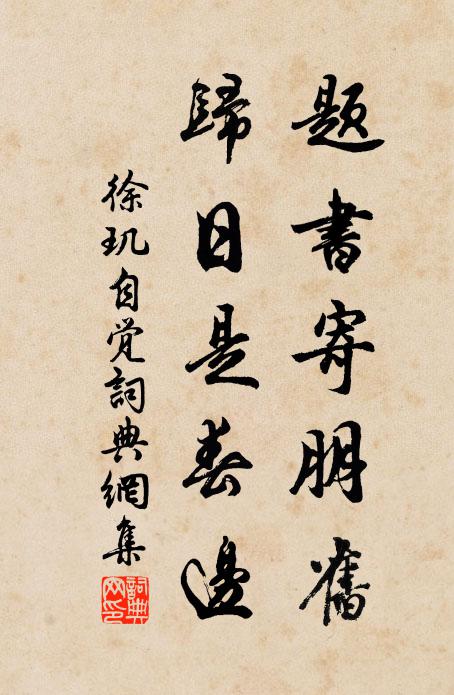 題書寄朋舊
歸日是春邊
徐玑自觉詞典網集
詞典
网印